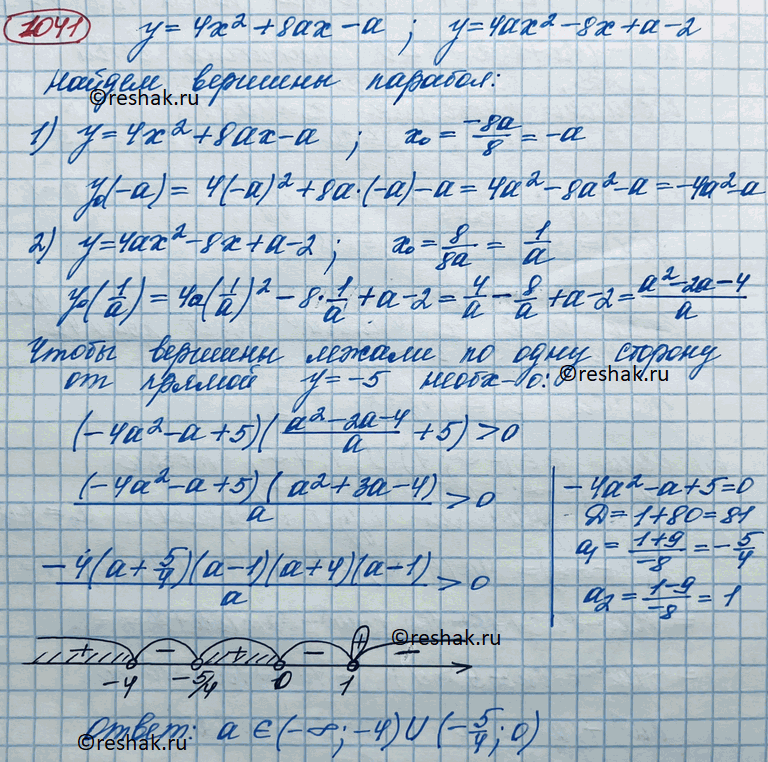 1041 y = 4x² + 8ax - a ; y = 4ax² - 8x + a - 2
Найдем вершины парабол:
©reshak.ru
1) y = 4x² + 8ax - a ; x₀ = -8a/8 = -a
y₀(-a) = 4(-a)² + 8a·(-a) - a = 4a² - 8a² - a = -4a² - a
2) y = 4ax² - 8x + a - 2 ; x₀ = 8/8a = 1/a
y₀(1/a) = 4a(1/a)² - 8·1/a + a - 2 = 4/a - 8/a + a - 2 = a² - 2a - 4/a
Чтобы вершины лежали по одну сторону
от прямой y = -5 необх-о:
©reshak.ru
(-4a² - a + 5)(a² - 2a - 4/a + 5) > 0
(-4a² - a + 5)(a² + 3a - 4)/a > 0
-4(a + 5/4)(a - 1)(a + 4)(a - 1)/a > 0
-4a² - a + 5 = 0
D = 1 + 80 = 81
a₁ = 1+9/-8 = -5/4
a₂ = 1-9/-8 = 1
©reshak.ru
+ - + - + -
-4 -5/4 0 1
Ответ: a ∈ (-∞; -4) ∪ (-5/4; 0)
©reshak.ru